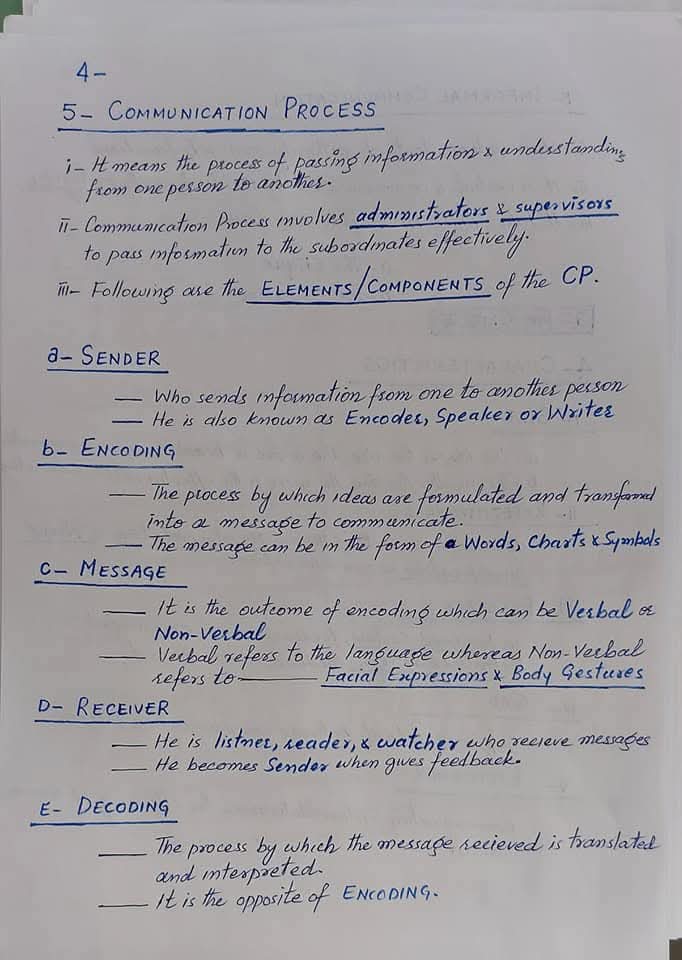 4-
5- COMMUNICATION PROCESS
i- It means the process of passing information & understanding
from one person to another.
ii- Communication Process involves administrators & supervisors
to pass information to the subordinates effectively.
iii- Following are the ELEMENTS/COMPONENTS of the CP.
a- SENDER
— Who sends information from one to another person
— He is also known as Encoder, Speaker or Writer
b- ENCODING
— The process by which ideas are formulated and transformed
into a message to communicate.
— The message can be in the form of a Words, Charts & Symbols
C- MESSAGE
— It is the outcome of encoding which can be Verbal or
Non-Verbal
— Verbal refers to the language whereas Non-Verbal
refers to — Facial Expressions & Body Gestures
D- RECEIVER
— He is listner, reader, & watcher who recieve messages
— He becomes Sender when gives feedback.
E- DECODING
— The process by which the message recieved is translated
and interpreted.
— It is the opposite of ENCODING.